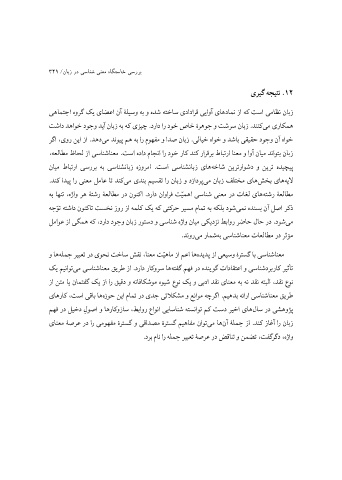 بررسی خاستگاه معنی شناسی در زبان/ ۳۲۹
۱۲. نتیجه گیری
زبان نظامی است که از نمادهای آوایی قرادادی ساخته شده و به وسیلهٔ آن اعضای یک گروه اجتماعی
همکاری می‌کنند. زبان سرشت و جوهرهٔ خاص خود را دارد. چیزی که به زبان آید وجود خواهد داشت
خواه آن وجود حقیقی باشد و خواه خیالی. زبان صدا و مفهوم را به هم پیوند می‌دهد. از این روی، اگر
زبان بتواند میان آوا و معنا ارتباط برقرار کند کار خود را انجام داده است. معناشناسی از لحاظ مطالعه،
پیچیده ترین و دشوارترین شاخه‌های زبانشناسی است. امروزه زبانشناسی به بررسی ارتباط میان
لایه‌های بخش‌های مختلف زبان می‌پردازد و زبان را تقسیم بندی می‌کند تا عامل معنی را پیدا کند.
مطالعهٔ رشته‌های لغات در معنی شناسی اهمیّت فراوان دارد. اکنون در مطالعهٔ رشتهٔ هر واژه، تنها به
ذکر اصل آن بسنده نمی‌شود بلکه به تمام مسیر حرکتی که یک کلمه از روز نخست تاکنون داشته توّجه
می‌شود. در حال حاضر روابط نزدیکی میان واژه شناسی و دستور زبان وجود دارد، که همگی از عوامل
مؤثر در مطالعات معناشناسی به‌شمار می‌روند.
معناشناسی با گسترهٔ وسیعی از پدیده‌ها اعم از ماهیّت معنا، نقش ساخت نحوی در تعبیر جمله‌ها و
تأثیر کاربردشناسی و اعتقادات گوینده در فهم گفته‌ها سروکار دارد. از طریق معناشناسی می‌توانیم یک
نوع نقد، البته نقد نه به معنای نقد ادبی و یک نوع شیوه موشکافانه و دقیق را از یک گفتمان یا متن از
طریق معناشناسی ارائه بدهیم. اگرچه موانع و مشکلاتی جدی در تمام این حوزه‌ها باقی است، کارهای
پژوهشی در سال‌های اخیر دست کم توانسته شناسایی انواع روابط، سازوکارها و اصول دخیل در فهم
زبان را آغاز کند. از جملهٔ آن‌ها می‌توان مفاهیم گسترهٔ مصداقی و گسترهٔ مفهومی را در عرصهٔ معنای
واژه، دگرگفت، تضمن و تناقض در عرصهٔ تعبیر جمله را نام برد.